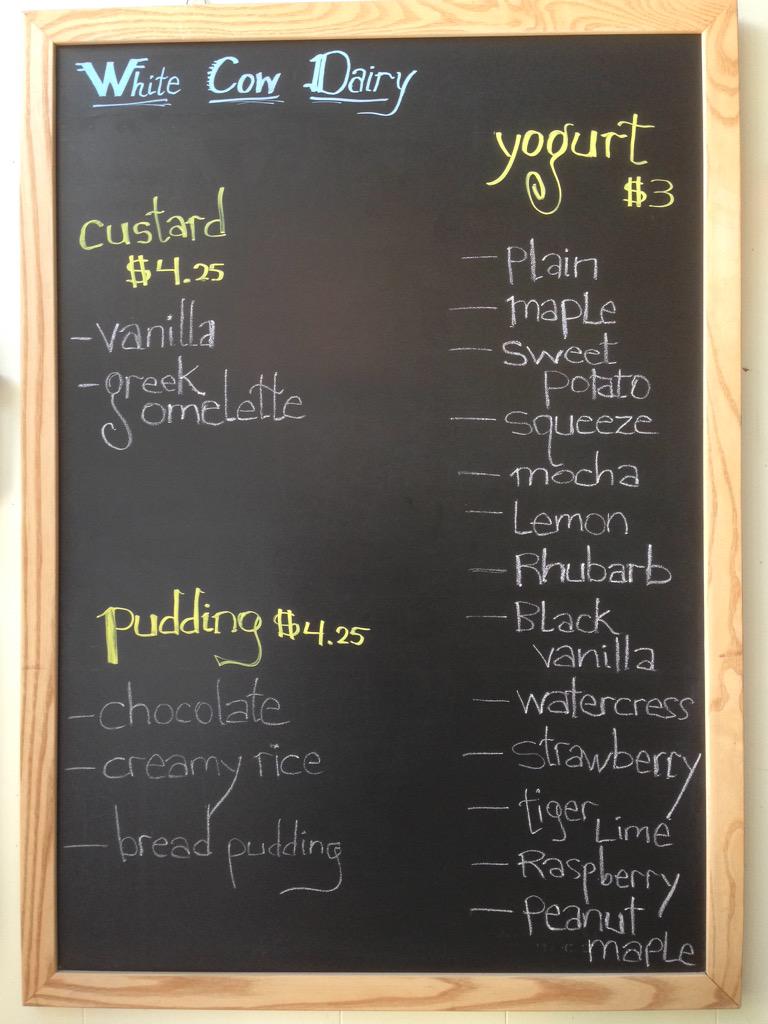 White Cow Dairy
custard
$4.25
- vanilla
- greek
omelette
pudding $4.25
- chocolate
- creamy rice
- bread pudding
yogurt
$3
- Plain
- maple
- sweet
potato
- squeeze
- mocha
- Lemon
- Rhubarb
- Black
vanilla
- watercress
- strawberry
- tiger Lime
- Raspberry
- Peanut
maple